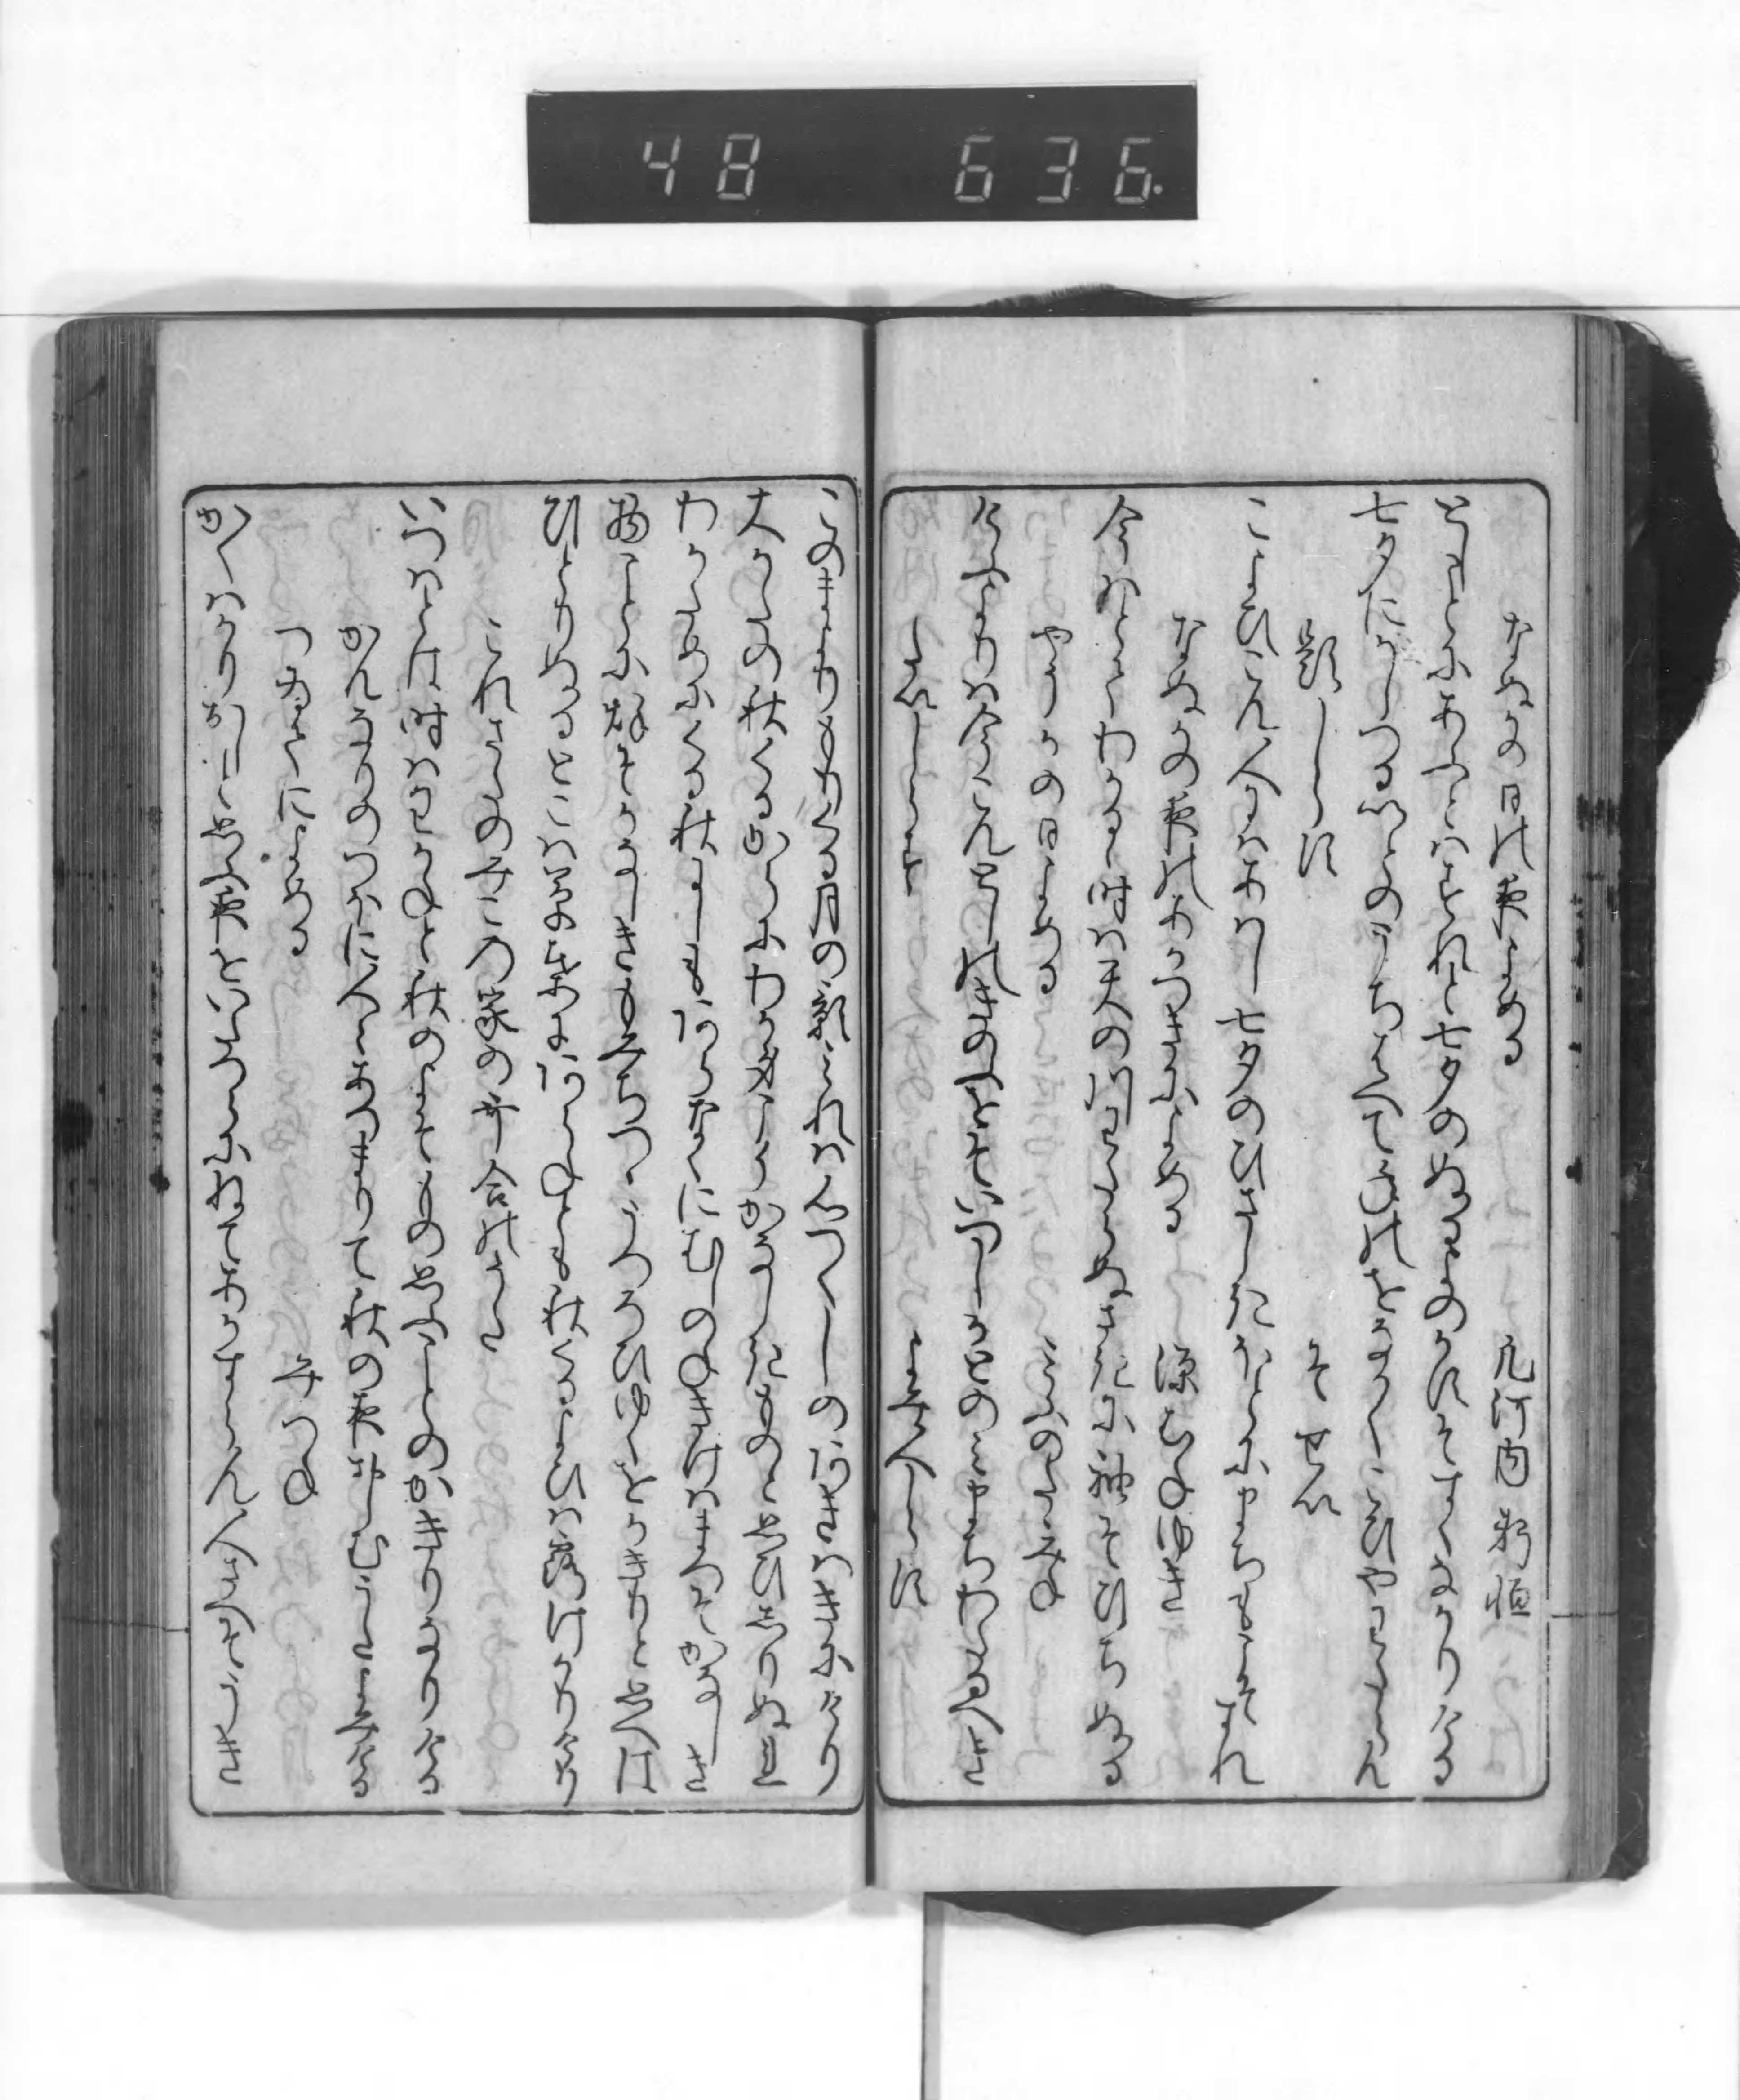 なぬかの日の夜よめる　凡河内躬恒
としことにあふとはすれと七夕のぬるよのかすそすくなかりける
七夕にかしつるいとのうちはへて年のをなかくこひやわたらん
題しらす　そせい
こよひこん人にはあはし七夕のひさしきほとにまちもこそすれ
なぬかの夜のあかつきによめる　源むねゆき
今はとてわかるゝ時は天の河わたらぬさきに袖そひちぬる
やうかの日よめる　みふのたゝみね
けふよりは今こん年のきのふをそいつしかとのみまちわたるへき
たいしらす　よみ人しらす
このまよりもりくる月の影みれは心つくしの秋はきにけり
大かたの秋くるからにわか身こそかなしき物と思ひしりぬれ
わかためにくる秋にしもあらなくにむしのねきけはまつそかなしき
物ことに秋そかなしきもみちつゝうつろひゆくをかきりと思へは
ひとりぬるとこは草はにあらねとも秋くるよひは露けかりけり
これさたのみこの家の哥合のうた
いつはとは時はわかねと秋のよそ物思ふことのかきりなりける
かんなりのつほに人々あつまりて秋の夜おしむうたよみける
ついてによめる　みつね
かくはかりおしと思ふ夜をいたつらにねてあかすらん人さへそうき
48　636.